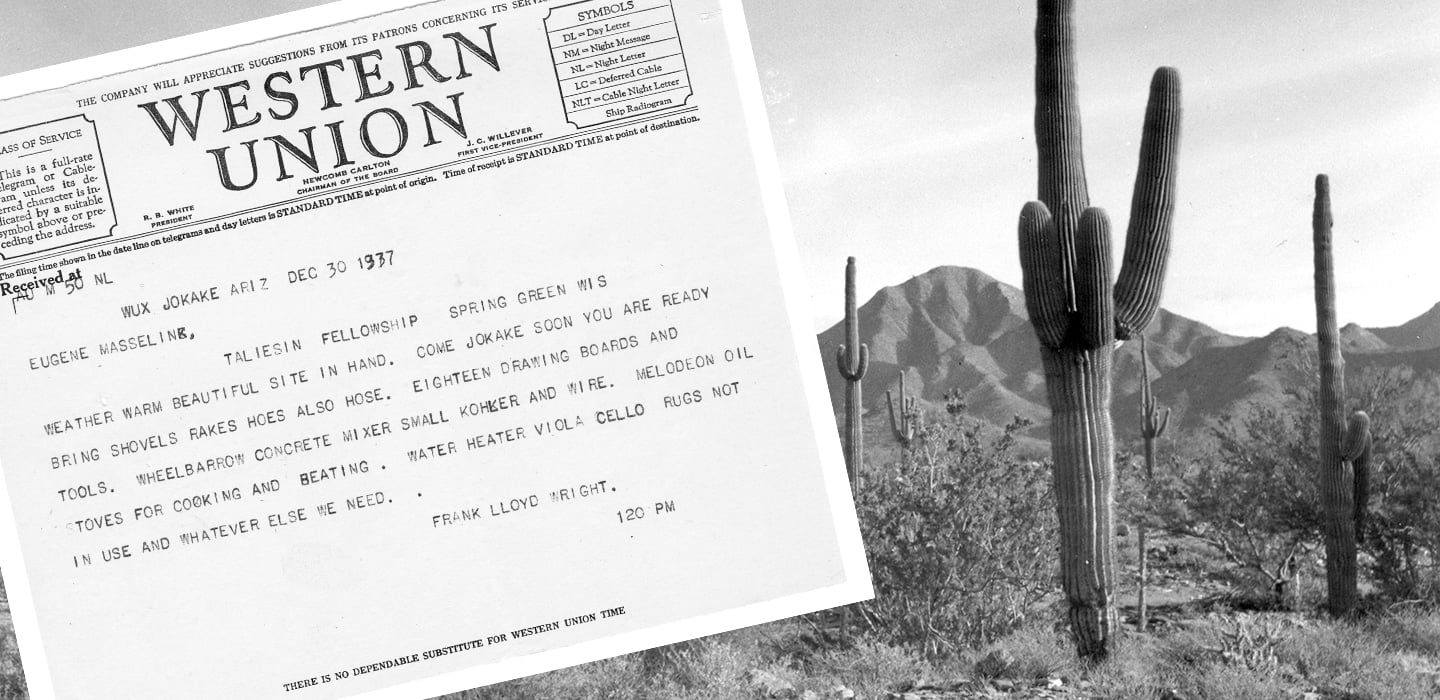 THE COMPANY WILL APPRECIATE SUGGESTIONS FROM ITS PATRONS CONCERNING ITS
WESTERN
UNION
SYMBOLS
DL = Day Letter
NM = Night Message
NL = Night Letter
LC = Deferred Cable
NLT = Cable Night Letter
Ship Radiogram
LASS OF SERVICE
This is a full-rate
elegram or Cable-
ram unless its de-
erred character is in-
dicated by a suitable
symbol above or pre-
ceding the address.
R. B. WHITE
PRESIDENT
NEWCOMB CARLTON
CHAIRMAN OF THE BOARD
J. C. WILLEVER
FIRST VICE-PRESIDENT
The filing time shown in the date line on telegrams and day letters is STANDARD TIME at point of origin. Time of receipt is STANDARD TIME at point of destination.
Received at
M 50 NL
WUX JOKAKE ARIZ DEC 30 1937
EUGENE MASSELINK,
TALIESIN FELLOWSHIP SPRING GREEN WIS
WEATHER WARM BEAUTIFUL SITE IN HAND. COME JOKAKE SOON YOU ARE READY
BRING SHOVELS RAKES HOES ALSO HOSE. EIGHTEEN DRAWING BOARDS AND
TOOLS. WHEELBARROW CONCRETE MIXER SMALL KOHKER AND WIRE. MELODEON OIL
STOVES FOR COOKING AND BEATING . WATER HEATER VIOLA CELLO RUGS NOT
IN USE AND WHATEVER ELSE WE NEED. .
FRANK LLOYD WRIGHT.
120 PM
THERE IS NO DEPENDABLE SUBSTITUTE FOR WESTERN UNION TIME